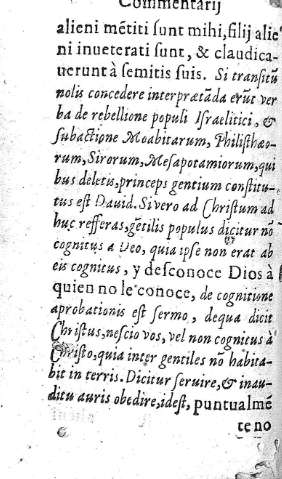 Commentarij
alieni mẽtiti ſunt mihi, filij alie
ni inueterati ſunt, & claudica-
uerunt à ſemitis ſuis. Si tranſitũ
nolis concedere interpretãda erũt ver
ba de rebellione populi Iſraelitici, &
ſubactione Moabitarum, Philiſthæo-
rum, Sirorum, Meſapotamiorum, qui
bus deletis, princeps gentium conſtitu-
tus eſt Dauid. Si vero ad Chriſtum ad
huc refferas, gẽtilis populus dicitur nõ
cognitus a Deo, quia ipſe non erat ab
eis cognitus, y deſconoce Dios à
quien no le conoce, de cognitione
aprobationis eſt ſermo, dequa dicit
Chriſtus, neſcio vos, vel non cognitus à
Chriſto, quia inter gentiles nõ habita-
bit in terris. Dicitur ſeruire, & in au-
ditu auris obedire, ideſt, puntualmẽ
te no